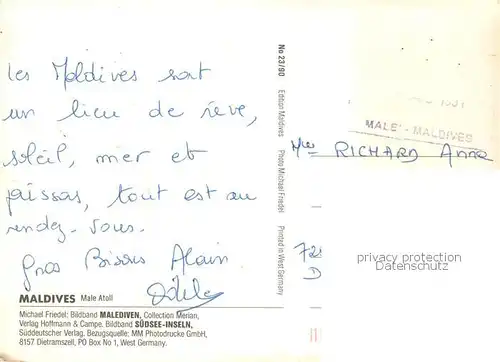 Les Maldives sont
un lieu de rêve,
soleil, mer et
poissons, tout est au
rendez-vous.
Gros Bisous Alain
Odile
MALDIVES Male Atoll
Michael Friedel: Bildband MALEDIVEN, Collection Merian,
Verlag Hoffmann & Campe. Bildband SÜDSEE-INSELN,
Süddeutscher Verlag. Bezugsquelle: MM Photodrucke GmbH,
8157 Dietramszell, PO Box No 1, West Germany.
No 23/90 Edition Maldives Photo Michael Friedel Printed in West Germany
MALE' - MALDIVES
Mle RICHARD Anne
72
D
privacy protection
Datenschutz